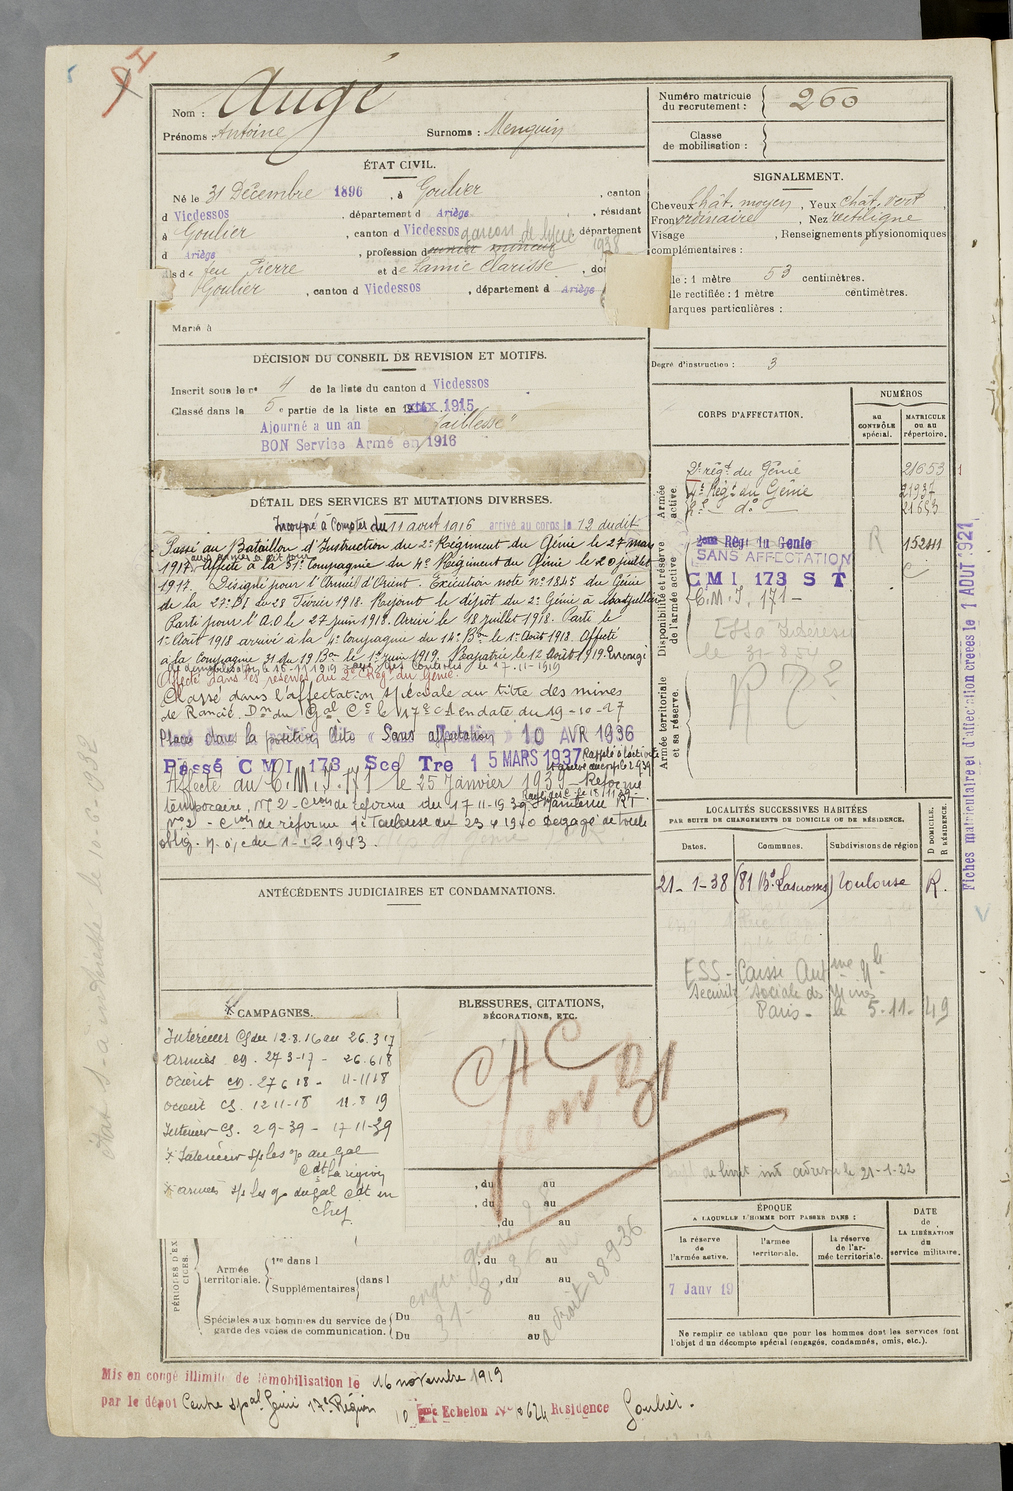 Nom : Augé
Prénoms : Antoine Surnoms : Menquin
Numéro matricule du recrutement : 260
Classe de mobilisation :
ÉTAT CIVIL.
Né le 31 Décembre 1896, à Goulier, canton
d Vicdessos, département d Ariège, résidant
à Goulier, canton d Vicdessos, département
d Ariège, profession d garçon de lycée 1938
fils de feu Pierre et de Lamic Clarisse, do
Goulier, canton d Vicdessos, département d Ariège
Marié à
SIGNALEMENT.
Cheveux chât. moyen, Yeux chât. vert
Front ordinaire, Nez rectiligne
Visage , Renseignements physionomiques
complémentaires :
le : 1 mètre 53 centimètres.
lle rectifiée : 1 mètre centimètres.
arques particulières :
Degré d'instruction : 3
DÉCISION DU CONSEIL DE REVISION ET MOTIFS.
Inscrit sous le n° 4 de la liste du canton d Vicdessos
Classé dans la 5e partie de la liste en 1915
Ajourné a un an faiblesse"
BON Service Armé en 1916
DÉTAIL DES SERVICES ET MUTATIONS DIVERSES.
Incorporé à compter du 11 août 1916 arrivé au corps le 12 dudit
Passé au Bataillon d'Instruction du 2e Régiment du Génie le 27 mars
aux armées le dit jour
1917. Affecté à la 51e Compagnie du 4e Régiment du Génie le 20 juillet
1917. Désigné pour l'Armée d'Orient. Exécution note n° 1845 du Génie
de la 27e DI du 28 Février 1918. Rejoint le dépôt du 2e Génie à Montpellier
Parti pour l'A.O le 27 juin 1918. Arrivé le 18 juillet 1918. Parti le
1er Août 1918 arrivé à la 4e Compagnie du 14e Bon le 1er Août 1918. Affecté
à la Compagnie 31 du 19 Bon le 1er juin 1919. Rapatrié le 12 Août 1919. Encongé
Affecté dans les réserves du 2e Rég. du Génie.
Classé dans l'affectation spéciale au titre des mines
de Rancié. Don du Gal Ct le 17e C A en date du 19-10-27
Placé dans la position dite « Sans affectation » 10 AVR 1936
Passé C M I 173 Scd Tre 15 MARS 1937 Rappelé à l'activité
Affecté au C.M.I. 171 le 25 Janvier 1939 - Réformé
temporaire, n° 2 - Cion de réforme du 17-11-39 Maintenu RT
n° 2 - Cion de réforme de Toulouse du 23 4 1940 Dégagé de toute
oblig. du 1-12 1943.
ANTÉCÉDENTS JUDICIAIRES ET CONDAMNATIONS.
CORPS D'AFFECTATION.
NUMÉROS
au CONTRÔLE spécial.
MATRICULE ou au répertoire.
Armée active
2e régt du Génie 21653
4e Régt du Génie 21937
2e do 21653
Disponibilité et réserve de l'armée active
2eme Régt du Genie R 152111
SANS AFFECTATION
CMI 173 ST
C.M.I. 171 -
Armée territoriale et sa réserve.
RT2
LOCALITÉS SUCCESSIVES HABITÉES
PAR SUITE DE CHANGEMENTS DE DOMICILE OU DE RÉSIDENCE.
Dates. Communes. Subdivisions de région D DOMICILE. R RÉSIDENCE.
21-1-38 (81 Bd Lascrosses) Toulouse R.
ESS - Caisse Autme Nle
Sécurité sociale des Mines
Paris - le 5-11-49
CAMPAGNES.
Intérieur CS du 12.8.16 au 26.3.17
armées CD. 27 3-17 - 26.6 18
Orient CD. 27 6 18 - 11-11 18
Orient CS. 12 11-18 11-8 19
Intérieur CS. 2 9-39 - 17 11-39
* Intérieur s/s les o/ du Gal
Cdt la région
* armées s/s les o/ du Gal Cdt en
Chef
BLESSURES, CITATIONS,
DÉCORATIONS, ETC.
, du au
, du au
, du au
, du au
, du au
PÉRIODES D'EXERCICES.
Armée territoriale. 1re dans l
Supplémentaires dans l
Spéciales aux hommes du service de garde des voies de communication. Du au
Du au
ÉPOQUE
A LAQUELLE L'HOMME DOIT PASSER DANS :
la réserve de l'armée active.
l'armée territoriale.
la réserve de l'armée territoriale.
DATE de LA LIBÉRATION du service militaire.
7 Janv 19
Ne remplir ce tableau que pour les hommes dont les services font
l'objet d'un décompte spécial (engagés, condamnés, omis, etc.).
Fiches matriculaire et d'affectation créées le 1 AOUT 1921
Mis en congé illimité de démobilisation le 16 novembre 1919
par le dépôt Centre spal Génie 17e Région 10 Echelon N° 2624 Résidence Goulier.